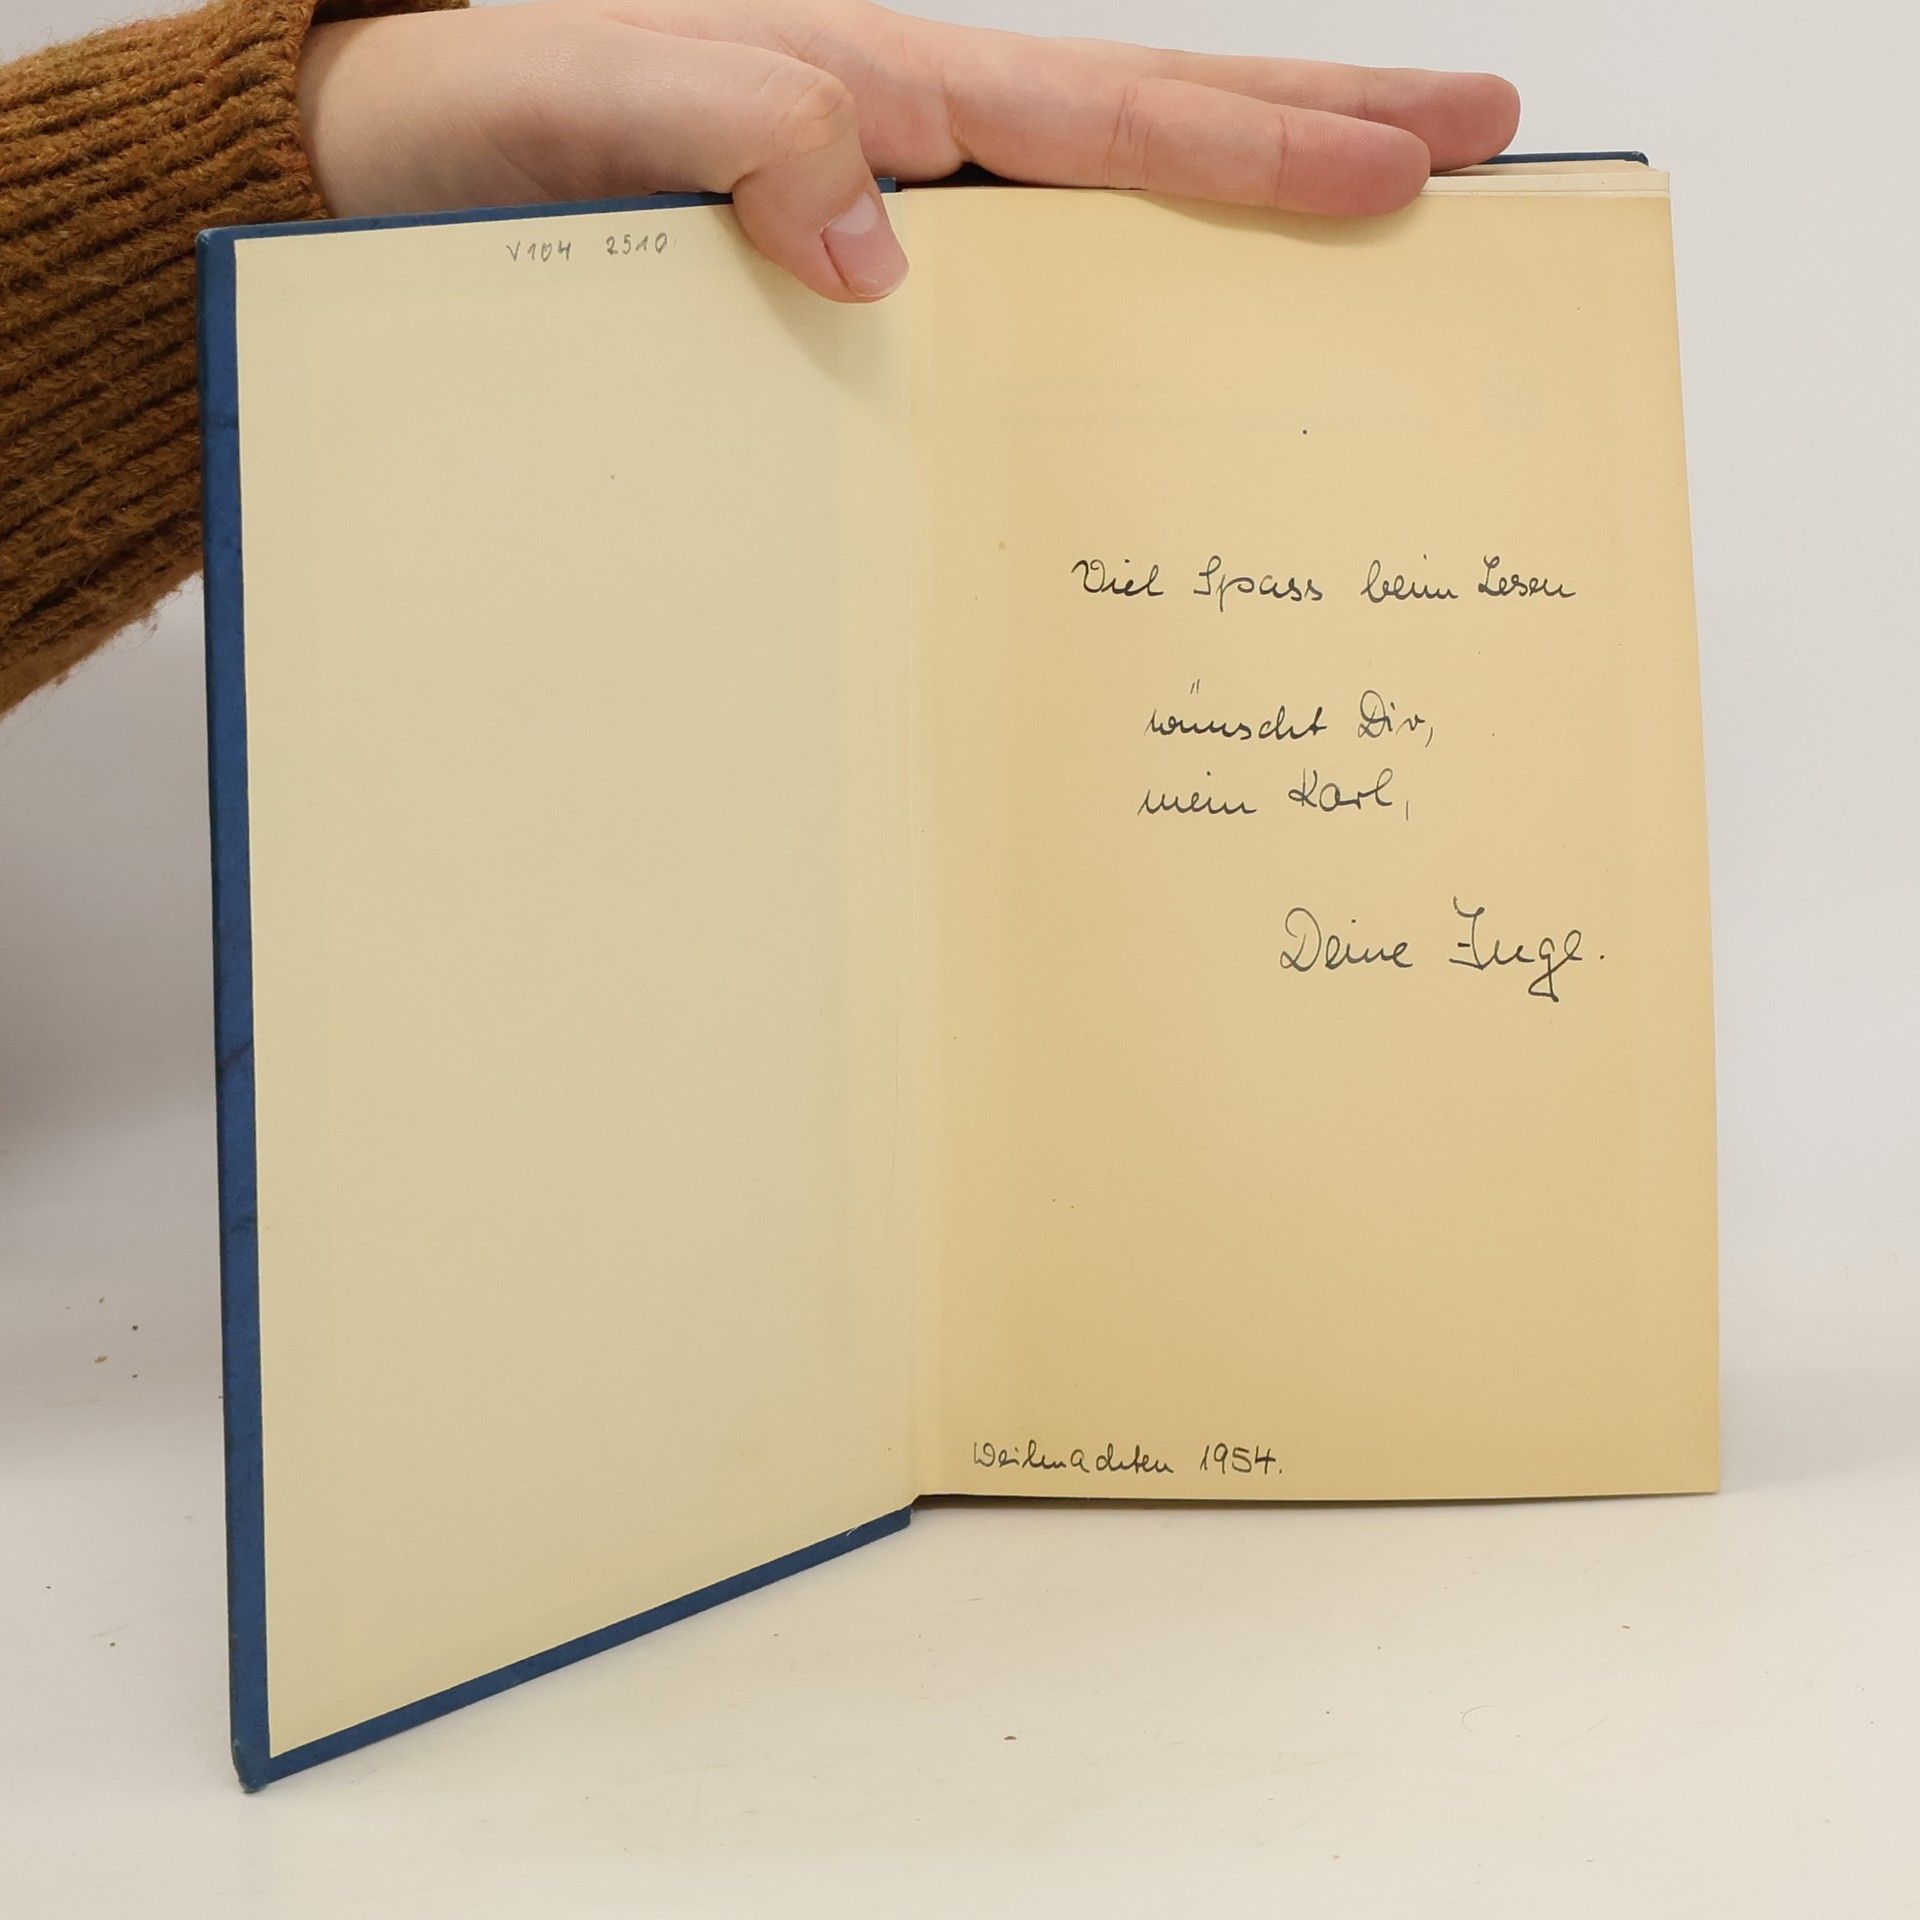 V104 2510.
Viel Spass beim Lesen
wünscht Dir,
mein Karl,
Deine Inge.
Weihnachten 1954.